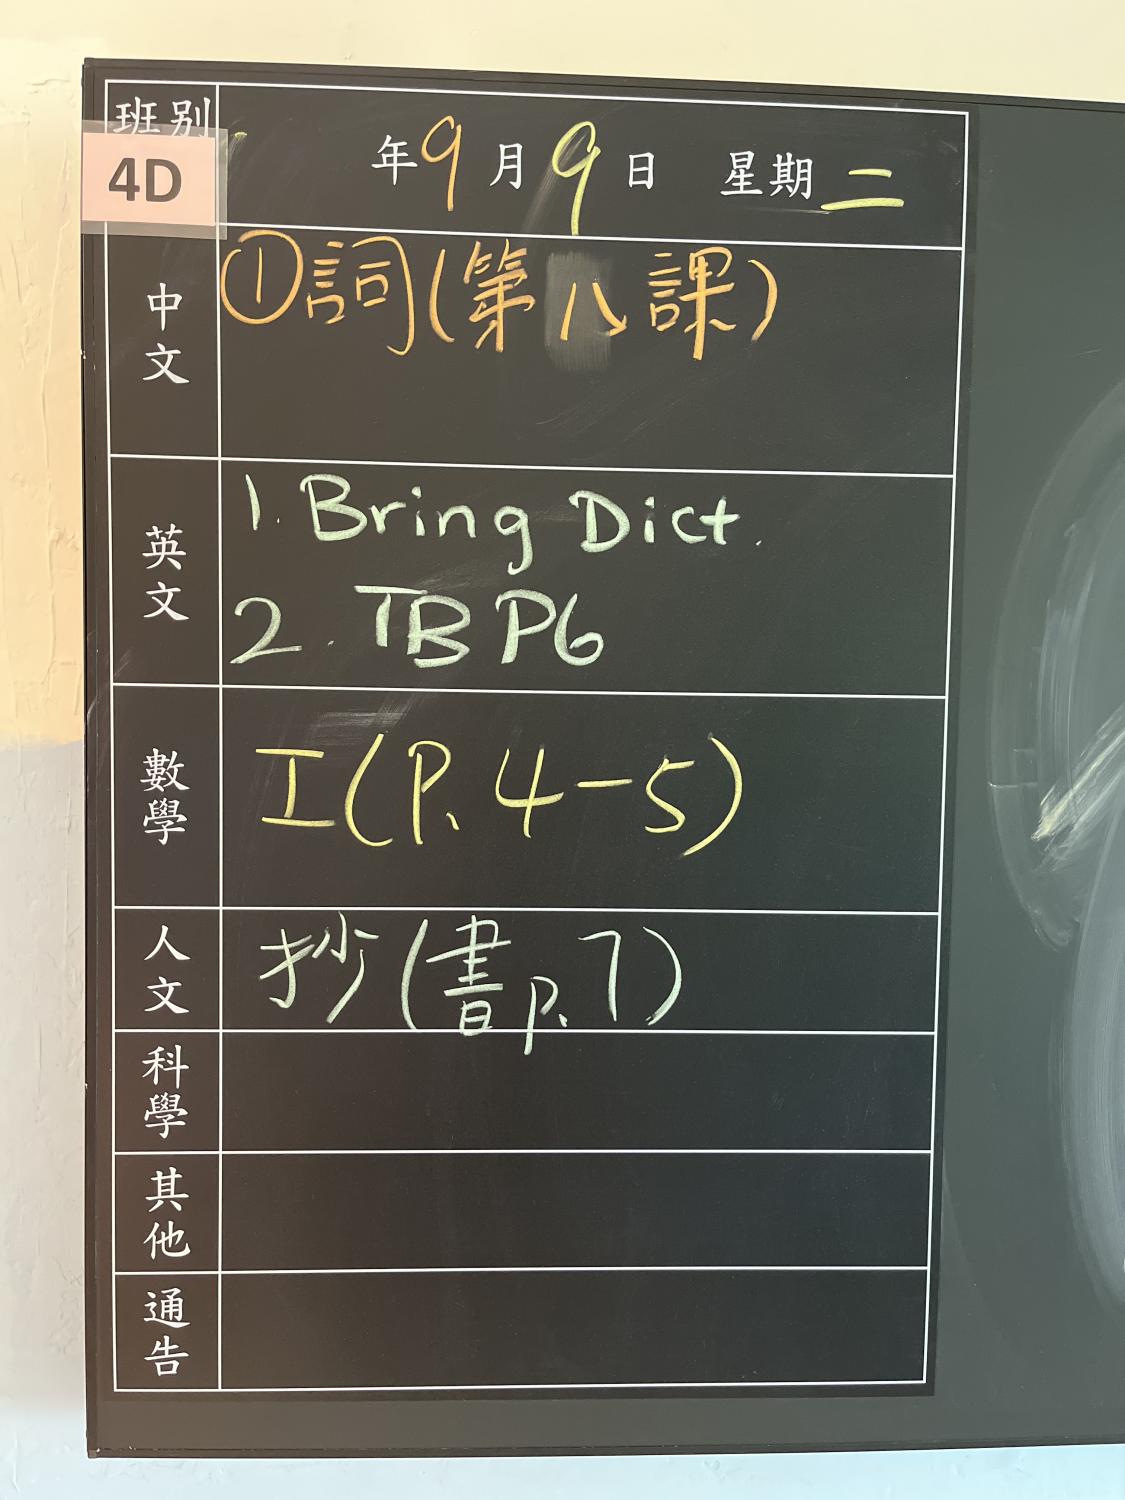 班別
4D
年9月9日 星期二
中文
①詞(第八課)
英文
1. Bring Dict.
2. TB P6
數學
工(P.4-5)
人文
抄(書p.7)
科學
其他
通告